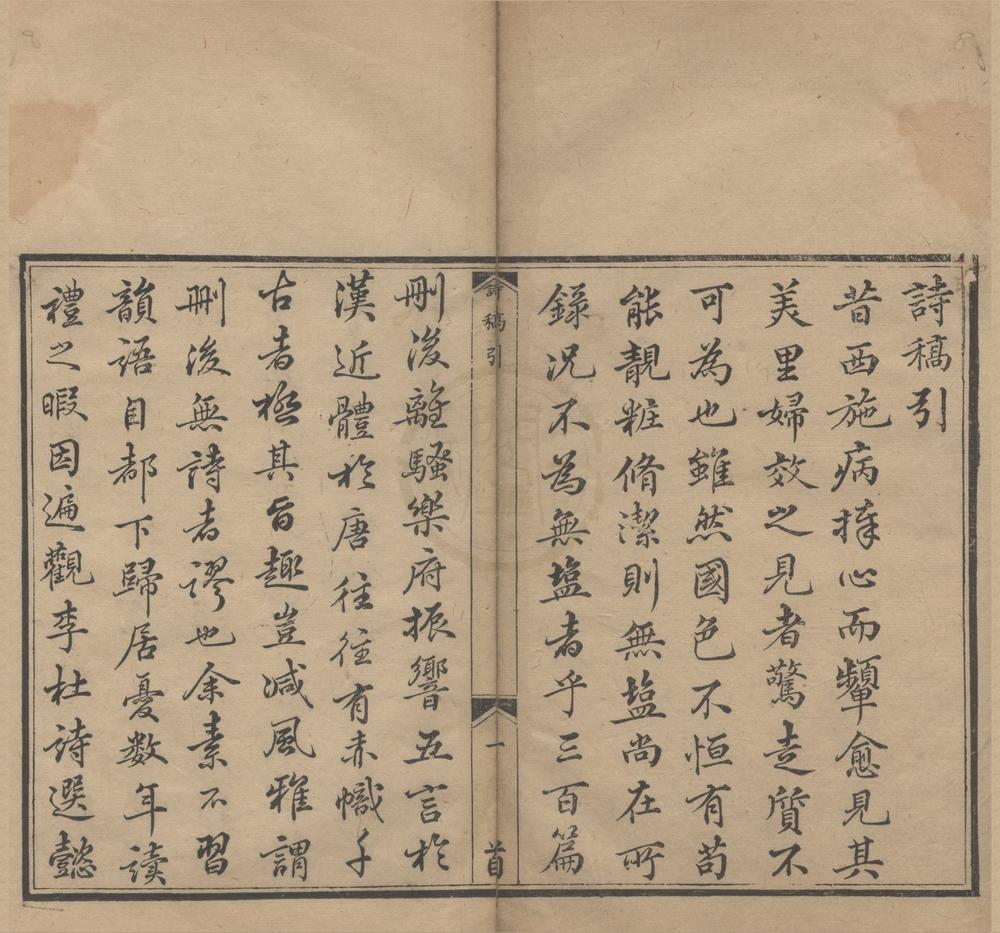 詩稿引
昔西施病捧心而顰愈見其
美里婦效之見者驚走質不
可為也雖然國色不恒有苟
能靚粧脩潔則無塩尚在所
錄況不為無塩者乎三百篇
詩稿引
一
首
刪後離騷樂府振響五言於
漢近體於唐往往有赤幟千
古者極其旨趣豈減風雅謂
刪後無詩者謬也余素不習
韻語自都下歸居憂數年讀
禮之暇因遍觀李杜詩選懿